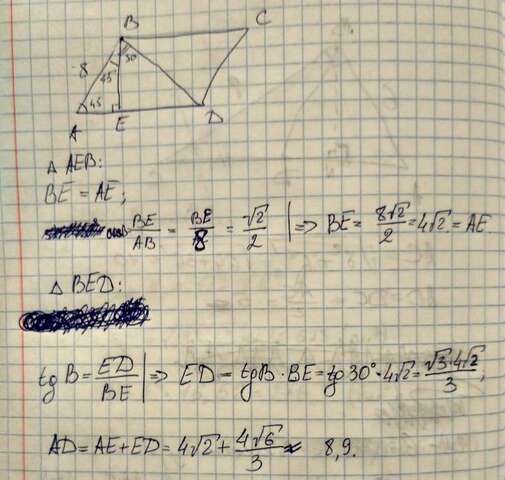 B
C
8
45
30
45
A
E
D
△ AEB:
BE = AE;
cosB BE/AB = BE/8 = √2/2 | => BE = 8√2/2 = 4√2 = AE
△ BED:
tg B = ED/BE | => ED = tg B · BE = tg 30° · 4√2 = √3·4√2/3;
AD = AE + ED = 4√2 + 4√6/3 ≈ 8,9.